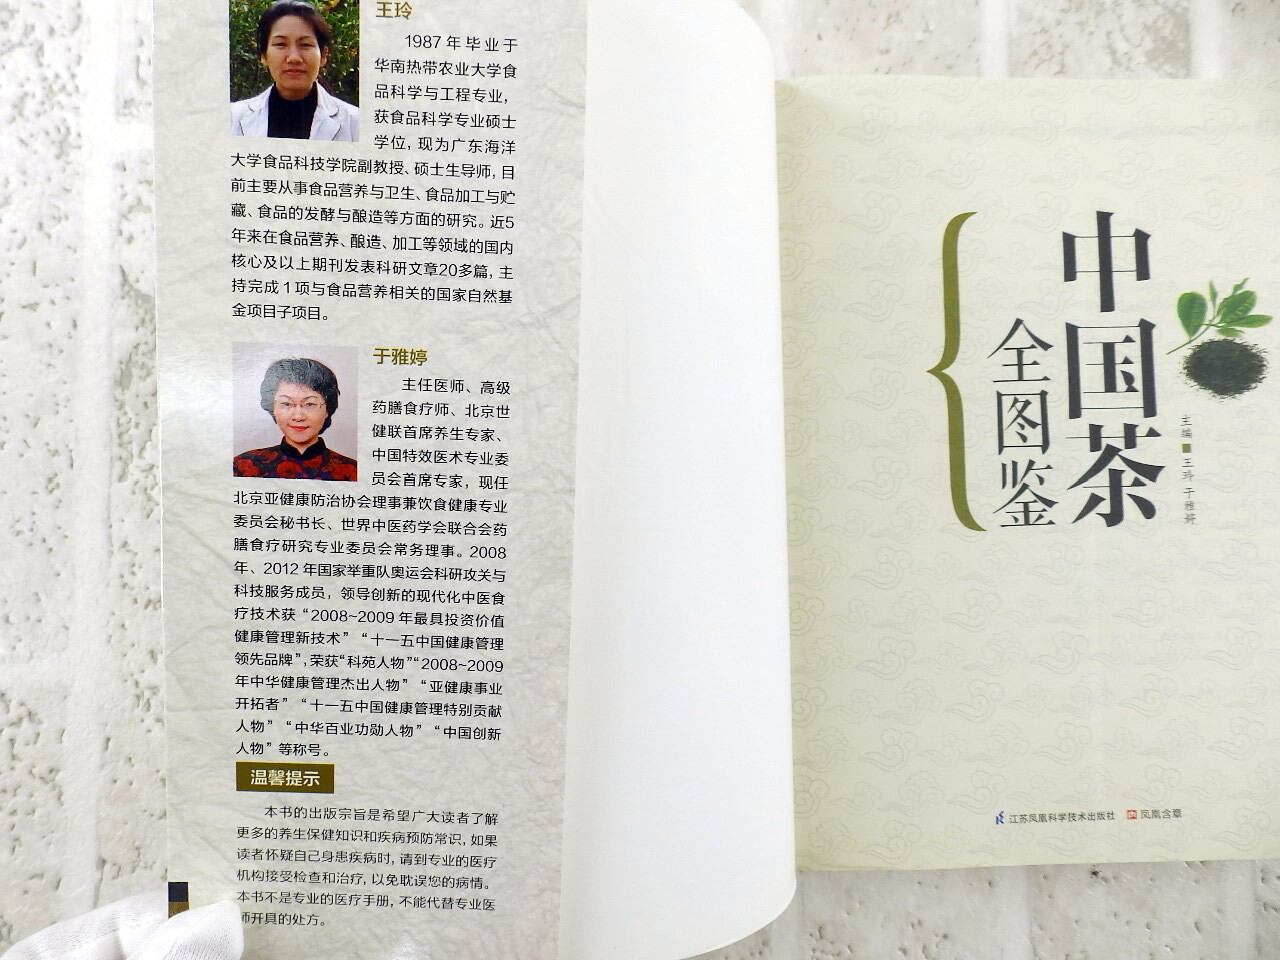 王玲
1987年毕业于
华南热带农业大学食
品科学与工程专业，
获食品科学专业硕士
学位，现为广东海洋
大学食品科技学院副教授、硕士生导师，目
前主要从事食品营养与卫生、食品加工与贮
藏、食品的发酵与酿造等方面的研究。近5
年来在食品营养、酿造、加工等领域的国内
核心及以上期刊发表科研文章20多篇，主
持完成1项与食品营养相关的国家自然基
金项目子项目。
于雅婷
主任医师、高级
药膳食疗师、北京世
健联首席养生专家、
中国特效医术专业委
员会首席专家，现任
北京亚健康防治协会理事兼饮食健康专业
委员会秘书长、世界中医药学会联合会药
膳食疗研究专业委员会常务理事。2008
年、2012年国家举重队奥运会科研攻关与
科技服务成员，领导创新的现代化中医食
疗技术获“2008~2009年最具投资价值
健康管理新技术”“十一五中国健康管理
领先品牌”，荣获“科苑人物”“2008~2009
年中华健康管理杰出人物”“亚健康事业
开拓者”“十一五中国健康管理特别贡献
人物”“中华百业功勋人物”“中国创新
人物”等称号。
温馨提示
本书的出版宗旨是希望广大读者了解
更多的养生保健知识和疾病预防常识，如果
读者怀疑自己身患疾病时，请到专业的医疗
机构接受检查和治疗，以免耽误您的病情。
本书不是专业的医疗手册，不能代替专业医
师开具的处方。
中国茶
全图鉴
主编 王玲 于雅婷
江苏凤凰科学技术出版社 凤凰含章